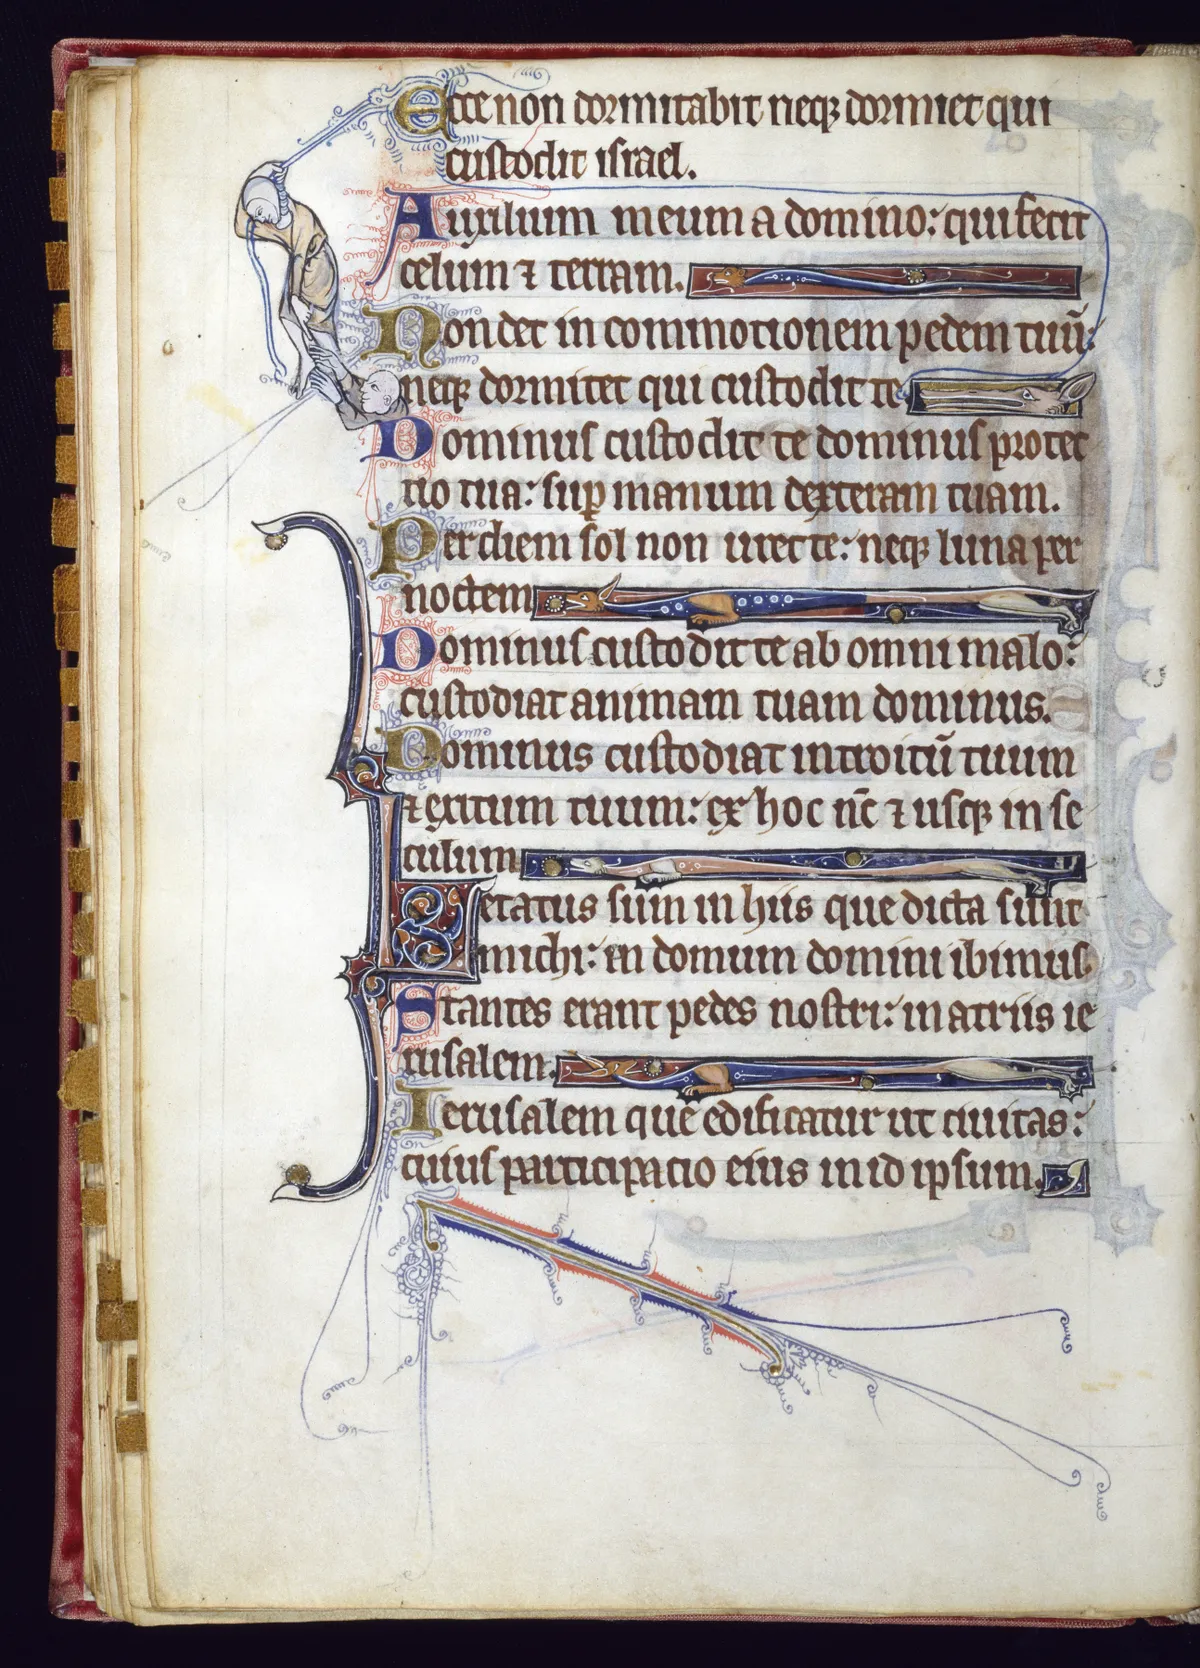 Ecce non dormitabit neqꝫ dormiet qui
custodit israel.
Auxilium meum a domino: qui fecit
celum ⁊ terram.
Non det in commotionem pedem tuū:
neqꝫ dormitet qui custodit te
Dominus custodit te dominus protec
tio tua: suꝑ manum dexteram tuam.
Per diem sol non uret te: neqꝫ luna per
noctem
Dominus custodit te ab omni malo:
custodiat animam tuam dominus.
Dominus custodiat introitū tuum
⁊ exitum tuum: ex hoc nc̄ ⁊ usqꝫ in se
culum
Letatus sum in hiis que dicta sunt
michi: in domum domini ibimus
Stantes erant pedes nostri: in atriis ie
rusalem.
Ierusalem que edificatur ut ciuitas:
cuius participatio eius in id ipsum.